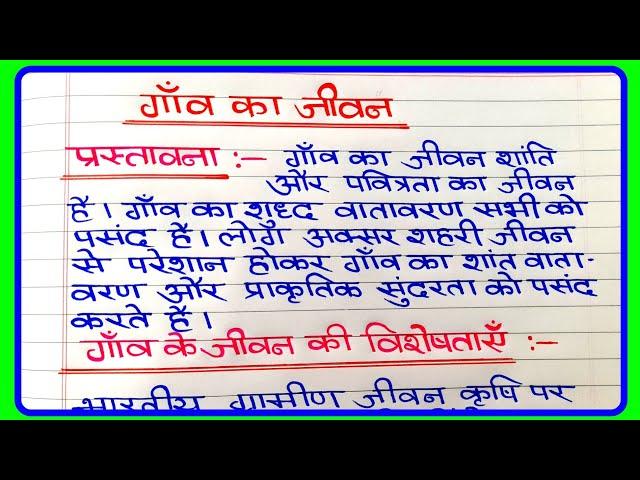 गाँव का जीवन
प्रस्तावना :- गाँव का जीवन शांति
और पवित्रता का जीवन
है। गाँव का शुध्द वातावरण सभी को
पसंद है। लोग अक्सर शहरी जीवन
से परेशान होकर गाँव का शांत वाता-
वरण और प्राकृतिक सुंदरता को पसंद
करते है।
गाँव के जीवन की विशेषताएँ :-
भारतीय ग्रामीण जीवन कृषि पर